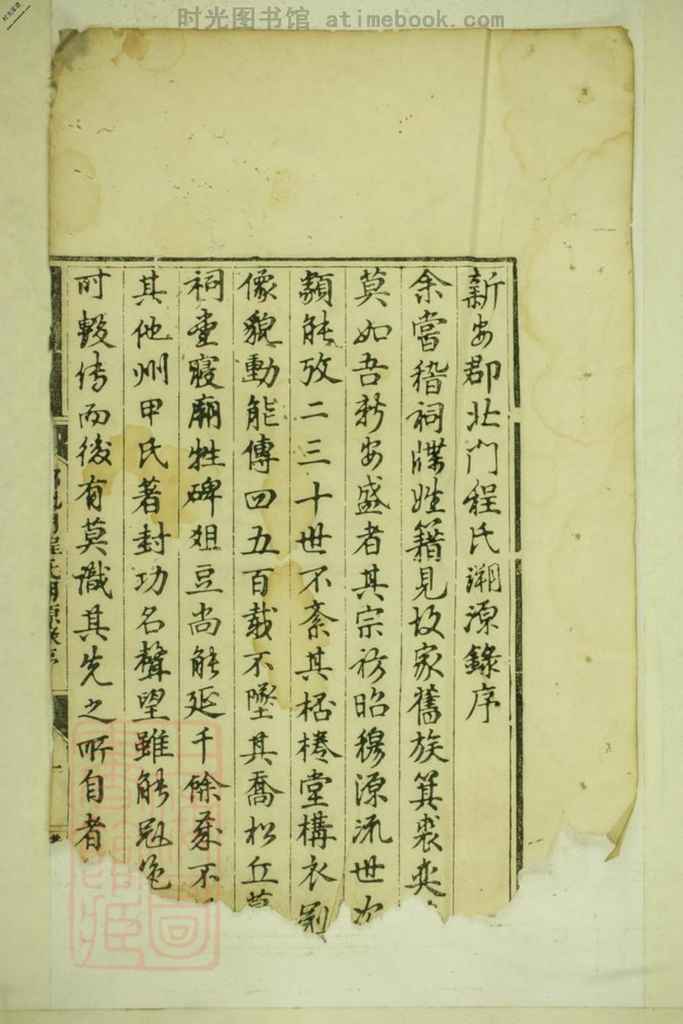 时光图书馆 atimebook.com
新安郡北门程氏溯源錄序
余嘗稽祠牒姓籍見故家舊族箕裘奕
莫如吾新安盛者其宗祊昭穆源流世次
類能攷二三十世不紊其栝棬堂構衣冠
像貌動能傳四五百載不墜其喬松丘墓
祠堂寢廟牲碑俎豆尚能延千餘葉不
其他州甲氏著封功名聲望雖能冠
时毂传而後有莫識其先之所自者